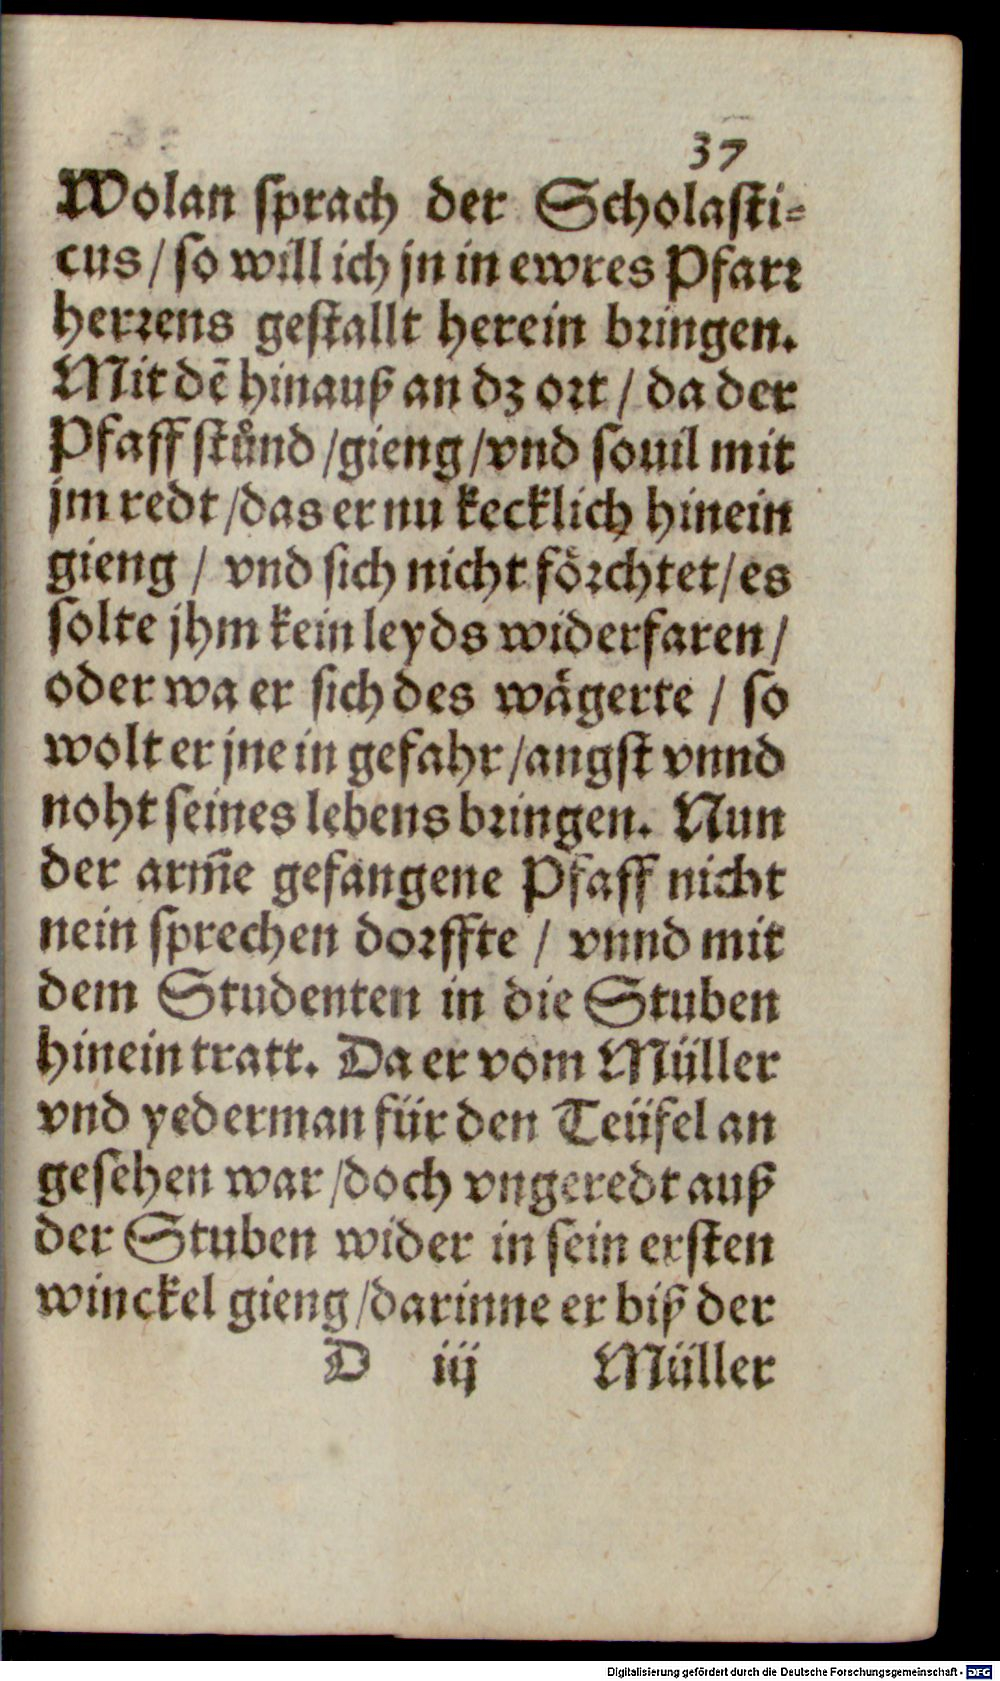 37
Wolan sprach der Scholasti-
cus / so will ich jn in ewres Pfarr
herrens gestallt herein bringen.
Mit dē hinauß an dz ort / da der
Pfaff stůnd / gieng / vnd souil mit
jm redt / das er nu kecklich hinein
gieng / vnd sich nicht förchtet / es
solte jhm kein leyds widerfaren /
oder wa er sich des wägerte / so
wolt er jne in gefahr / angst vnnd
noht seines lebens bringen. Nun
der arm̄e gefangene Pfaff nicht
nein sprechen dorffte / vnnd mit
dem Studenten in die Stuben
hinein tratt. Da er vom Müller
vnd yederman für den Teüfel an
gesehen war / doch vngeredt auß
der Stuben wider in sein ersten
winckel gieng / darinne er biß der
D iij Müller
Digitalisierung gefördert durch die Deutsche Forschungsgemeinschaft - DFG